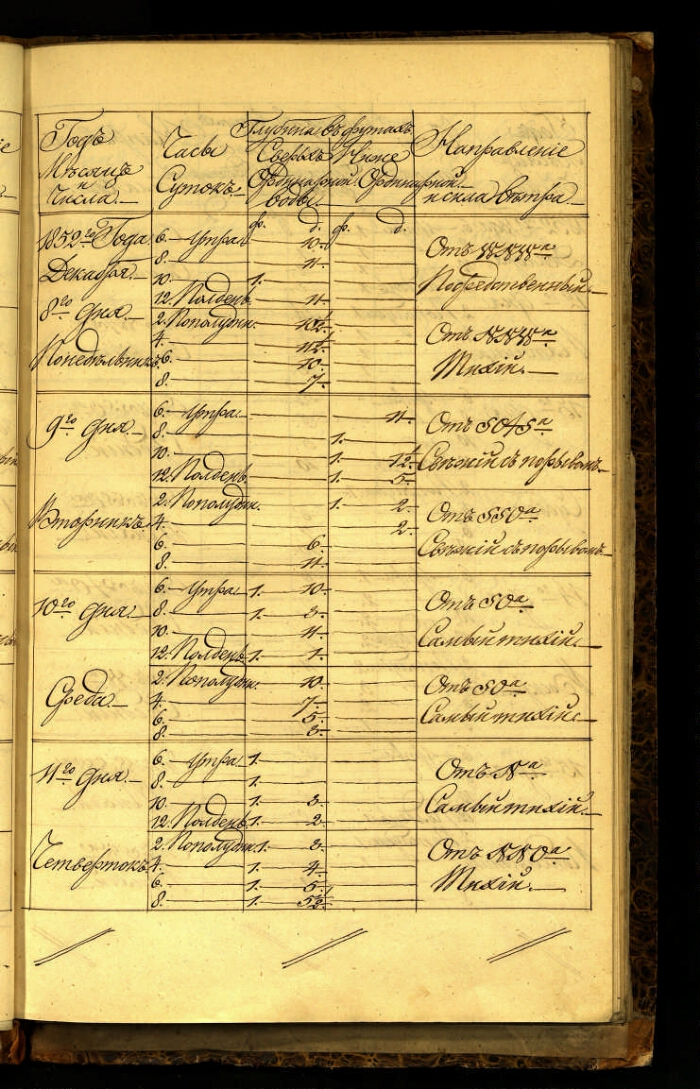 Годъ Мѣсяцъ и Числа.
Часы Сутокъ.
Глубина въ футахъ
Сверхъ Ординарной воды.
Ниже Ординарной.
Направленіе и сила вѣтра
ф. д. ф. д.
1852го Года 6. Утра 10. Отъ WNWa
8. 11.
Декабря. 10. 1. Посредственный.
12. Полдень. 11.
8го дня 2. Пополудни. 10½ Отъ NNWa
4. 11½
Понедѣльникъ 6. 10. Тихій.
8. 7.
6. Утра. 11.
9го дня. 8. 1. Отъ SOtSa
10. 1. 1½
12. Полдень. 1. 5. Свѣжій съ порывомъ.
2. Пополудни. 1. 2. Отъ SSOa
Вторникъ 4. 2.
6. 6. Свѣжій съ порывомъ
8. 11.
6. Утра 1. 10. Отъ SOa
10го дня. 8. 1. 3.
10. 11. Самый тихій.
12. Полдень 1. 1.
2. Пополудни. 10. Отъ SOa
Среда 4. 7.
6. 5. Самый тихій.
8. 3.
6. Утра 1. Отъ Na
11го дня. 8. 1.
10. 1. 3. Самый тихій.
12. Полдень 1. 2.
2. Пополудни. 1. 3. Отъ NNOa
Четвертокъ 4. 1. 4.
6. 1. 5. Тихій.
8. 1. 5½